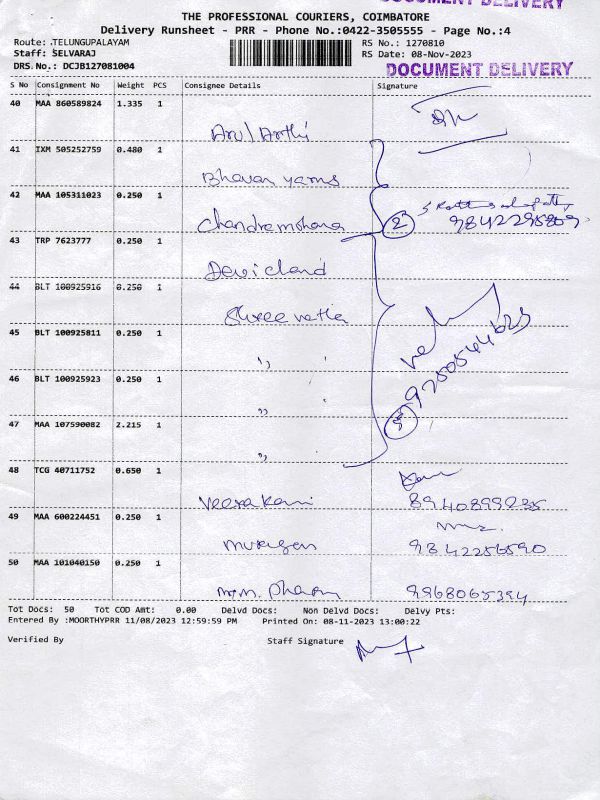 DOCUMENT DELIVERY
THE PROFESSIONAL COURIERS, COIMBATORE
Delivery Runsheet - PRR - Phone No.:0422-3505555 - Page No.:4
Route: .TELUNGUPALAYAM
RS No.: 1270810
Staff: SELVARAJ
RS Date: 08-Nov-2023
DRS.No.: DCJB127081004
DOCUMENT DELIVERY
S No Consignment No Weight PCS Consignee Details Signature
40 MAA 860589824 1.335 1
Arul Arthi
41 IXM 505252759 0.480 1
Bhavan yarns
42 MAA 105311023 0.250 1
Chandramohana 2 9842295809
43 TRP 7623777 0.250 1
Devichand
44 BLT 100925916 0.250 1
Shree netha
45 BLT 100925811 0.250 1
,,
46 BLT 100925923 0.250 1
,,
47 MAA 107590082 2.215 1
5
,,
48 TCG 40711752 0.650 1
Veerakani 8940899235
49 MAA 600224451 0.250 1
Murugan 9842256590
50 MAA 101040150 0.250 1
9968065394
Tot Docs: 50 Tot COD Amt: 0.00 Delvd Docs: Non Delvd Docs: Delvy Pts:
Entered By :MOORTHYPRR 11/08/2023 12:59:59 PM Printed On: 08-11-2023 13:00:22
Verified By Staff Signature